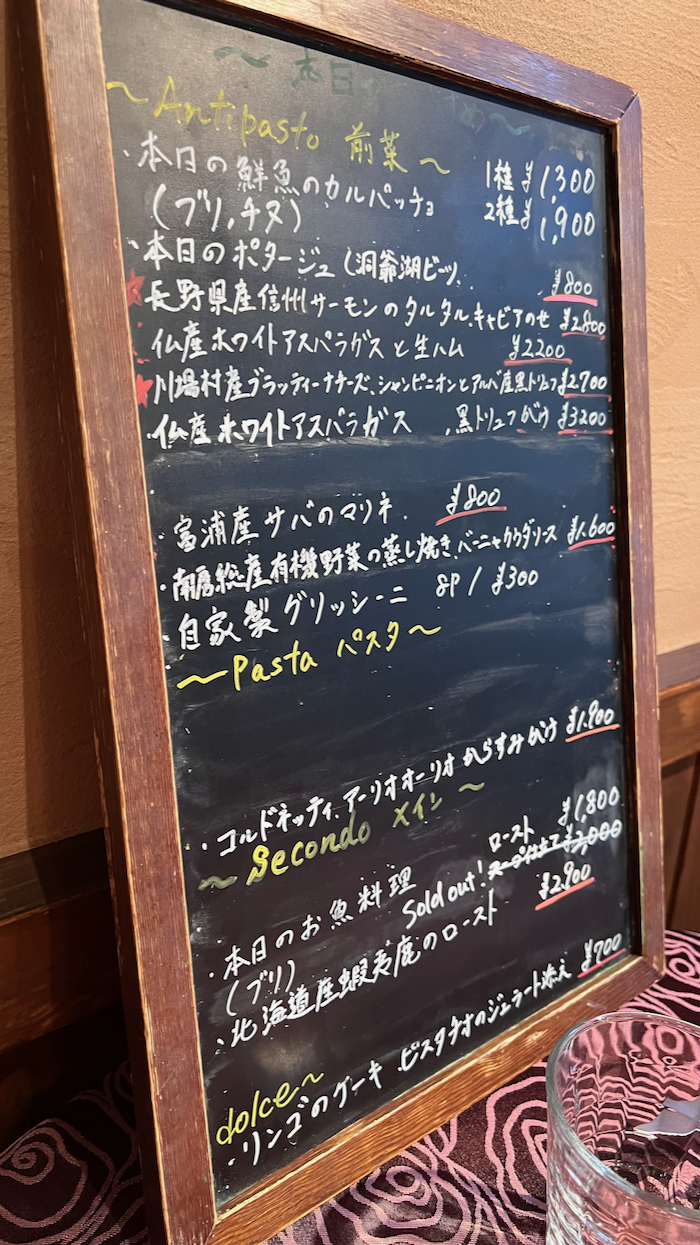 ～本日 すめ～
～Antipasto 前菜～
・本日の鮮魚のカルパッチョ 1種 ¥1,300
(ブリ,チヌ) 2種 ¥1,900
・本日のポタージュ(洞爺湖ビーツ、 ¥800
★長野県産信州サーモンのタルタル、キャビアのせ ¥2,800
仏産ホワイトアスパラガスと生ハム ¥2200
★川場村産ブラッティーナチーズ、シャンピニオンとアルバ産黒トリュフ ¥2,700
・仏産ホワイトアスパラガス 、黒トリュフがけ ¥3200
・富浦産サバのマリネ、 ¥800
・南房総産有機野菜の蒸し焼き、バーニャカウダソース ¥1,600
・自家製グリッシーニ 8P / ¥300
～Pasta パスタ～
・コルドネッティ、アーリオオーリオからすみがけ ¥1,900
～Secondo メイン～
・本日のお魚料理 ロースト ¥1,800
(ブリ) Sold out! スープ仕立て ¥2,000
・北海道産蝦夷鹿のロースト ¥2,900
dolce～
・リンゴのケーキ、ピスタチオのジェラート添え ¥700